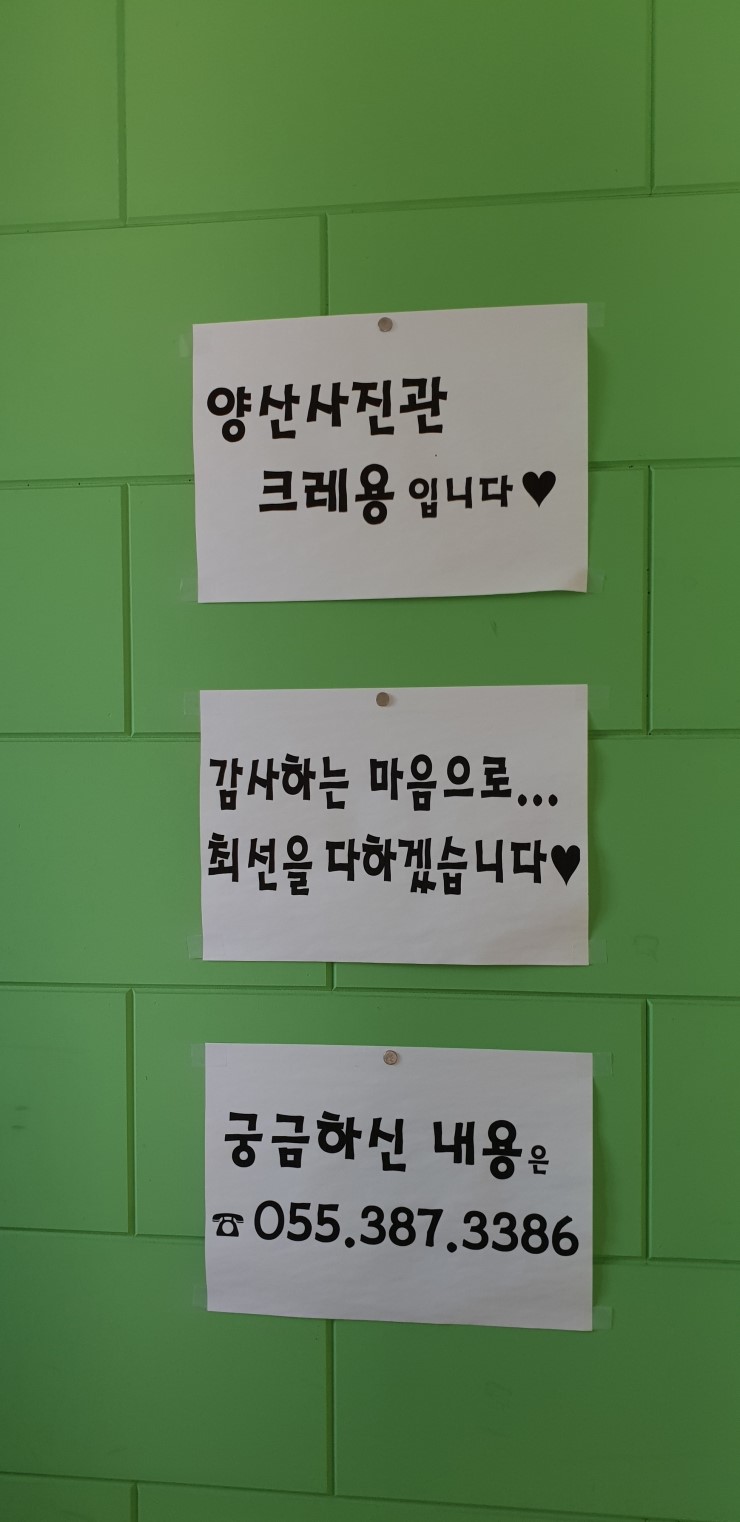 양산사진관
크레용 입니다♥
감사하는 마음으로...
최선을 다하겠습니다♥
궁금하신 내용은
☎055.387.3386